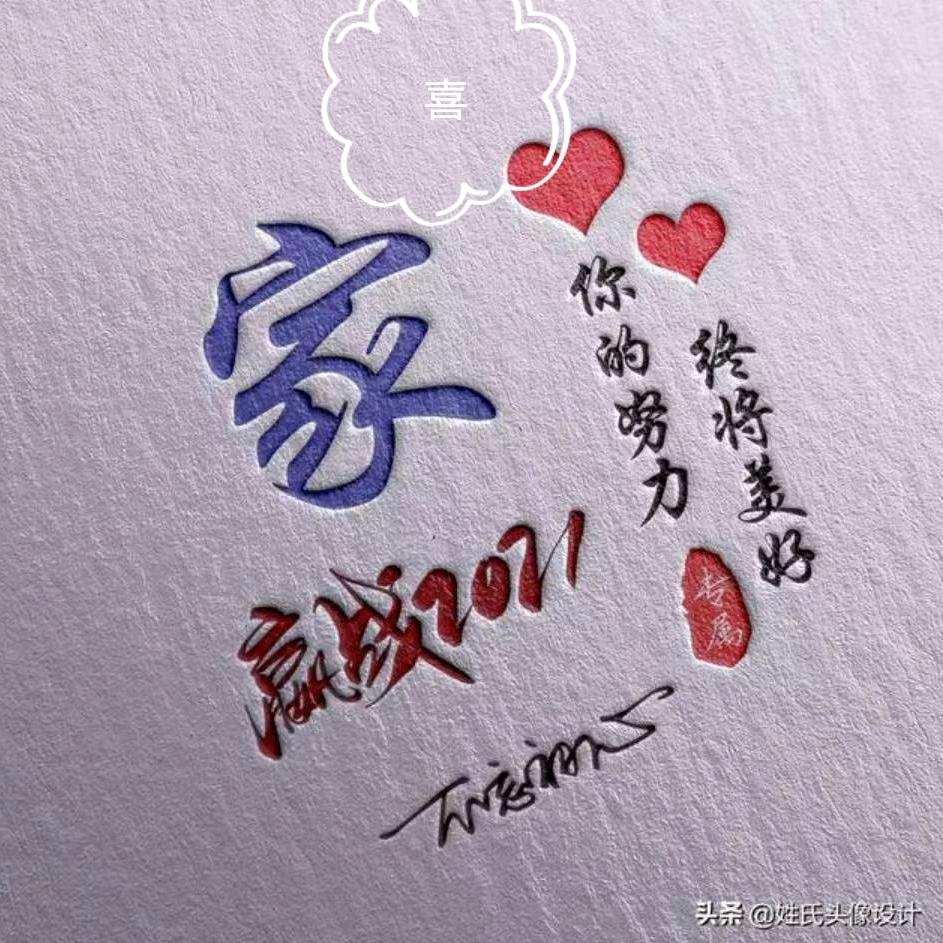 喜
家
你的努力
终将美好
专属
赢战2021
不忘初心
头条 @姓氏头像设计